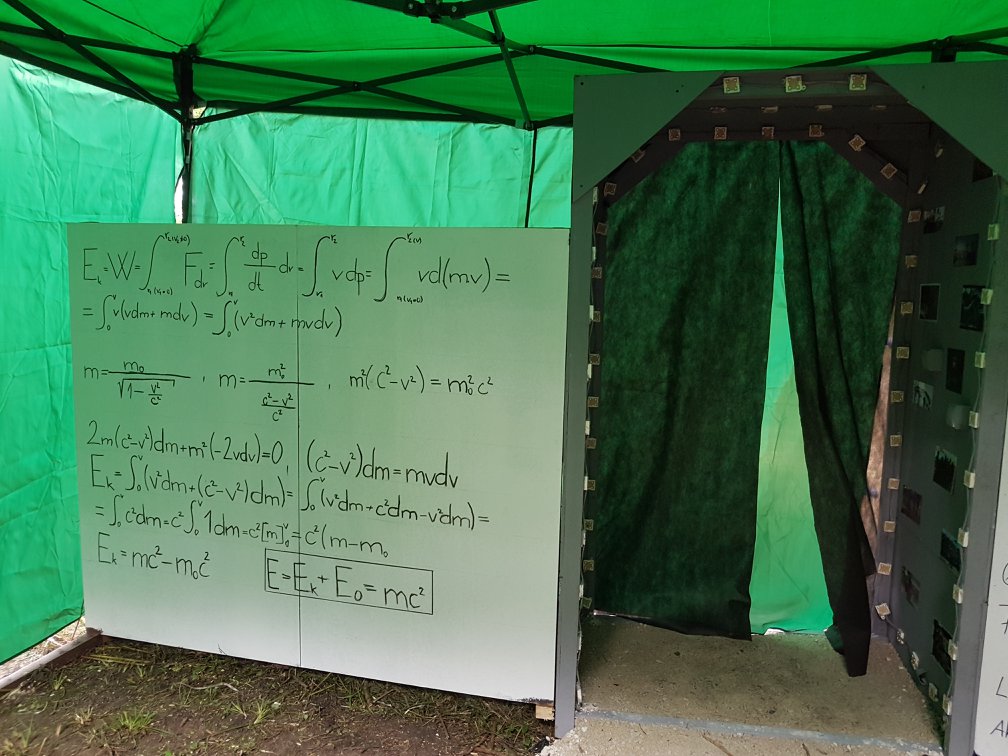 E_k = W = ∫_{r₁(v₁=0)}^{r₂(v₂≠0)} F dr = ∫_{r₁}^{r₂} dp/dt dr = ∫_{r₁}^{r₂} v dp = ∫_{r₁(v₁=0)}^{r₂(v)} vd(mv) =
= ∫₀^v v(vdm + mdv) = ∫₀^v (v²dm + mvdv)
m = m₀/√(1 − v²/c²) , m = m₀²/((c² − v²)/c²) , m²(c² − v²) = m₀²c²
2m(c² − v²)dm + m²(−2vdv) = 0, (c² − v²)dm = mvdv
E_k = ∫₀^v (v²dm + (c² − v²)dm) = ∫₀^v (v²dm + c²dm − v²dm) =
= ∫₀^v c²dm = c² ∫₀^v 1dm = c²[m]₀^v = c²(m − m₀
E_k = mc² − m₀c²
E = E_k + E₀ = mc²